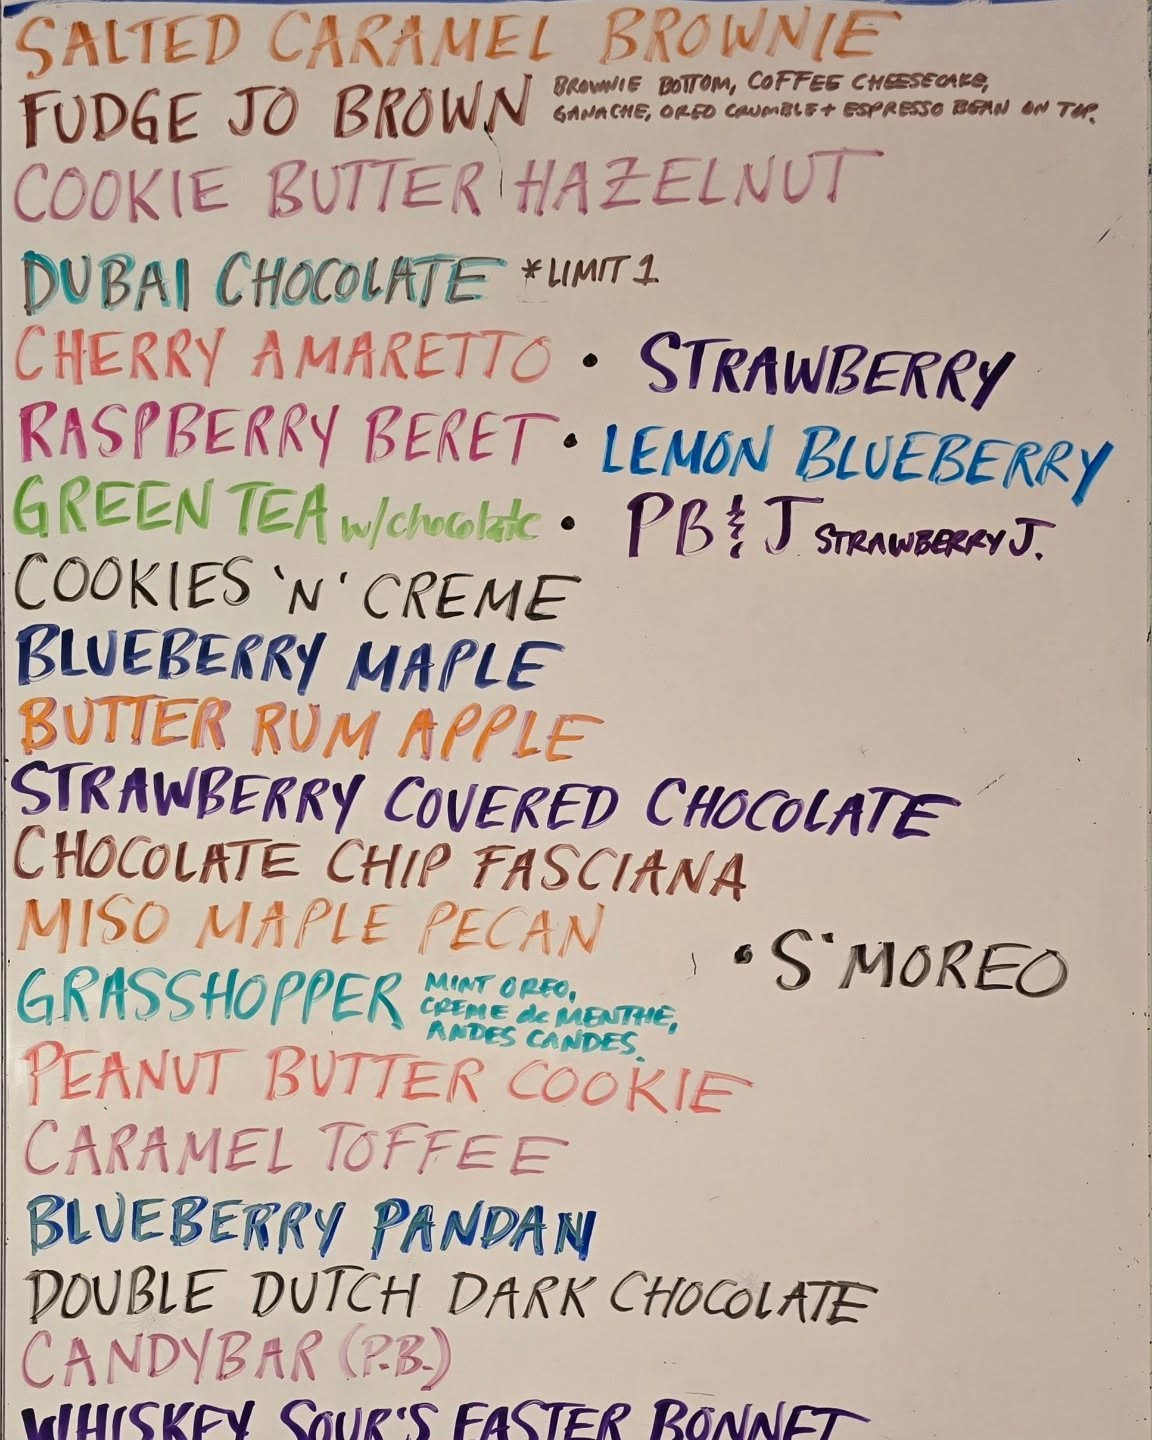 SALTED CARAMEL BROWNIE
FUDGE JO BROWN BROWNIE BOTTOM, COFFEE CHEESECAKE,
GANACHE, OREO CRUMBLE + ESPRESSO BEAN ON TOP.
COOKIE BUTTER HAZELNUT
DUBAI CHOCOLATE *LIMIT 1
CHERRY AMARETTO • STRAWBERRY
RASPBERRY BERET • LEMON BLUEBERRY
GREEN TEA w/chocolate • PB & J STRAWBERRY J.
COOKIES 'N' CREME
BLUEBERRY MAPLE
BUTTER RUM APPLE
STRAWBERRY COVERED CHOCOLATE
CHOCOLATE CHIP FASCIANA
MISO MAPLE PECAN
• S'MOREO
GRASSHOPPER MINT OREO,
CREME de MENTHE,
ANDES CANDES.
PEANUT BUTTER COOKIE
CARAMEL TOFFEE
BLUEBERRY PANDAN
DOUBLE DUTCH DARK CHOCOLATE
CANDYBAR (P.B.)
WHISKEY SOUR'S EASTER BONNET